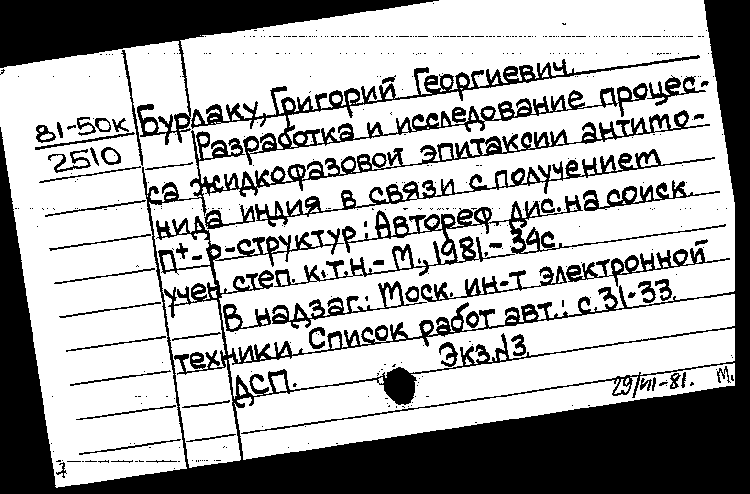 81-50к
2510
Бурлаку, Григорий Георгиевич.
Разработка и исследование процес-
са жидкофазовой эпитаксии антимо-
нида индия в связи с получением
п⁺-р-структур: Автореф. дис. на соиск.
учен. степ. к.т.н.- М., 1981.- 34с.
В надзаг.: Моск. ин-т электронной
техники. Список работ авт.: с.31-33.
Экз.№3
ДСП.
29/VII-81. М.